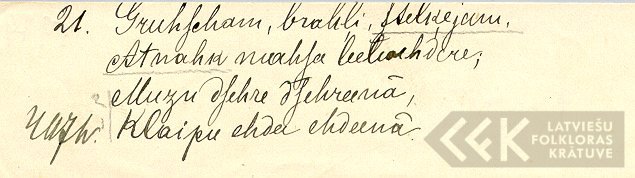 21. Gruhſcham, brahļi, ſtelķejam,
Atnahk mahſa leelaehdere;
Muzu dſehre dſehreenā,
Klaipu ehda ehdeenā.
LATVIEŠU
FOLKLORAS
KRĀTUVE